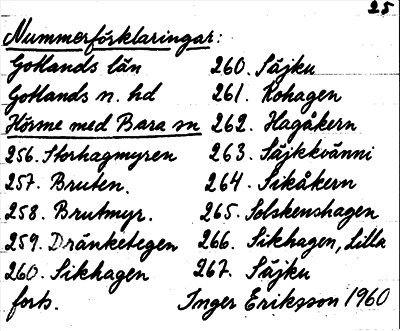 25
Nummerförklaringar:
Gotlands län
Gotlands n. hd
Hörsne med Bara sn
256. Storhagmyren
257. Bruten.
258. Brutmyr.
259. Dränketegen
260. Sikhagen
forts.
260. Säjku
261. Kohagen
262. Hagåkern
263. Säjkkvänni
264. Sikåkern
265. Solskenshagen
266. Sikhagen, Lilla
267. Säjku
Inger Eriksson 1960